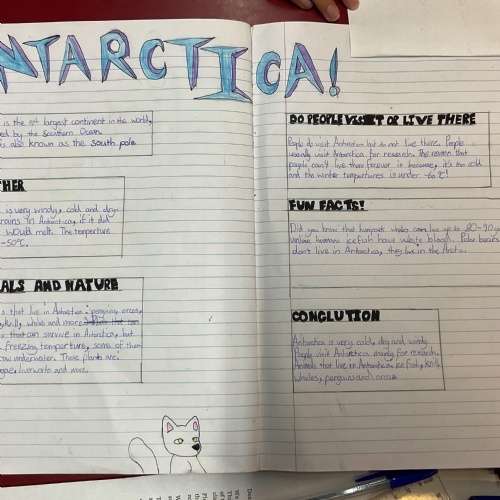 ANTARCTICA!
is the 5th largest continent in the world,
ed by the Southern Ocean.
is also known as the south pole
THER
is very windy, cold and dry.
rains in Antarctica, if it did
would melt. The temperture
-50°C.
ALS AND NATURE
s that live in Antarctica: penguins, orcas,
krill, whales and more
that can survive in Antarctica, but
freezing temperture, some of them
ow underwater. These plants are:
gae, liverworts and more.
DO PEOPLE VISIT OR LIVE THERE
People do visit Antarctica but do not live there. People
usually visit Antarctica for research. The reason that
people can't live there forever is because, it's too cold
and the winter tempurtures is under -60°C!
FUN FACTS!
Did you know that humpback whales can live up to 80-90
unlike humans icefish have white blood. Polar bears
don't live in Antarctica, they live in the Arctic.
CONCLUTION
Antarctica is very cold, dry and windy.
People visit Antarctica mainly for research.
Animals that live in Antarctica are icefish, krill,
whales, penguins and orcas